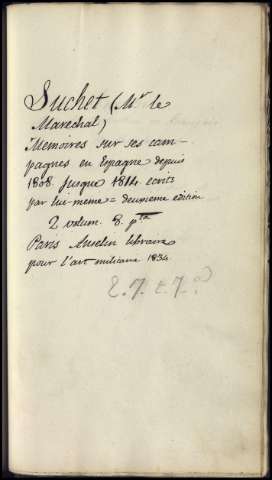 Suchet (Mr le
Marechal)
Memoires sur ses cam-
pagnes en Espagne depuis
1808. Jusque 1814. ecrits
par lui meme = deuxieme edition
2 volum. 8. pta
Paris Anselin libraire
pour l'art militaire 1834.
E. 7. t. 7.